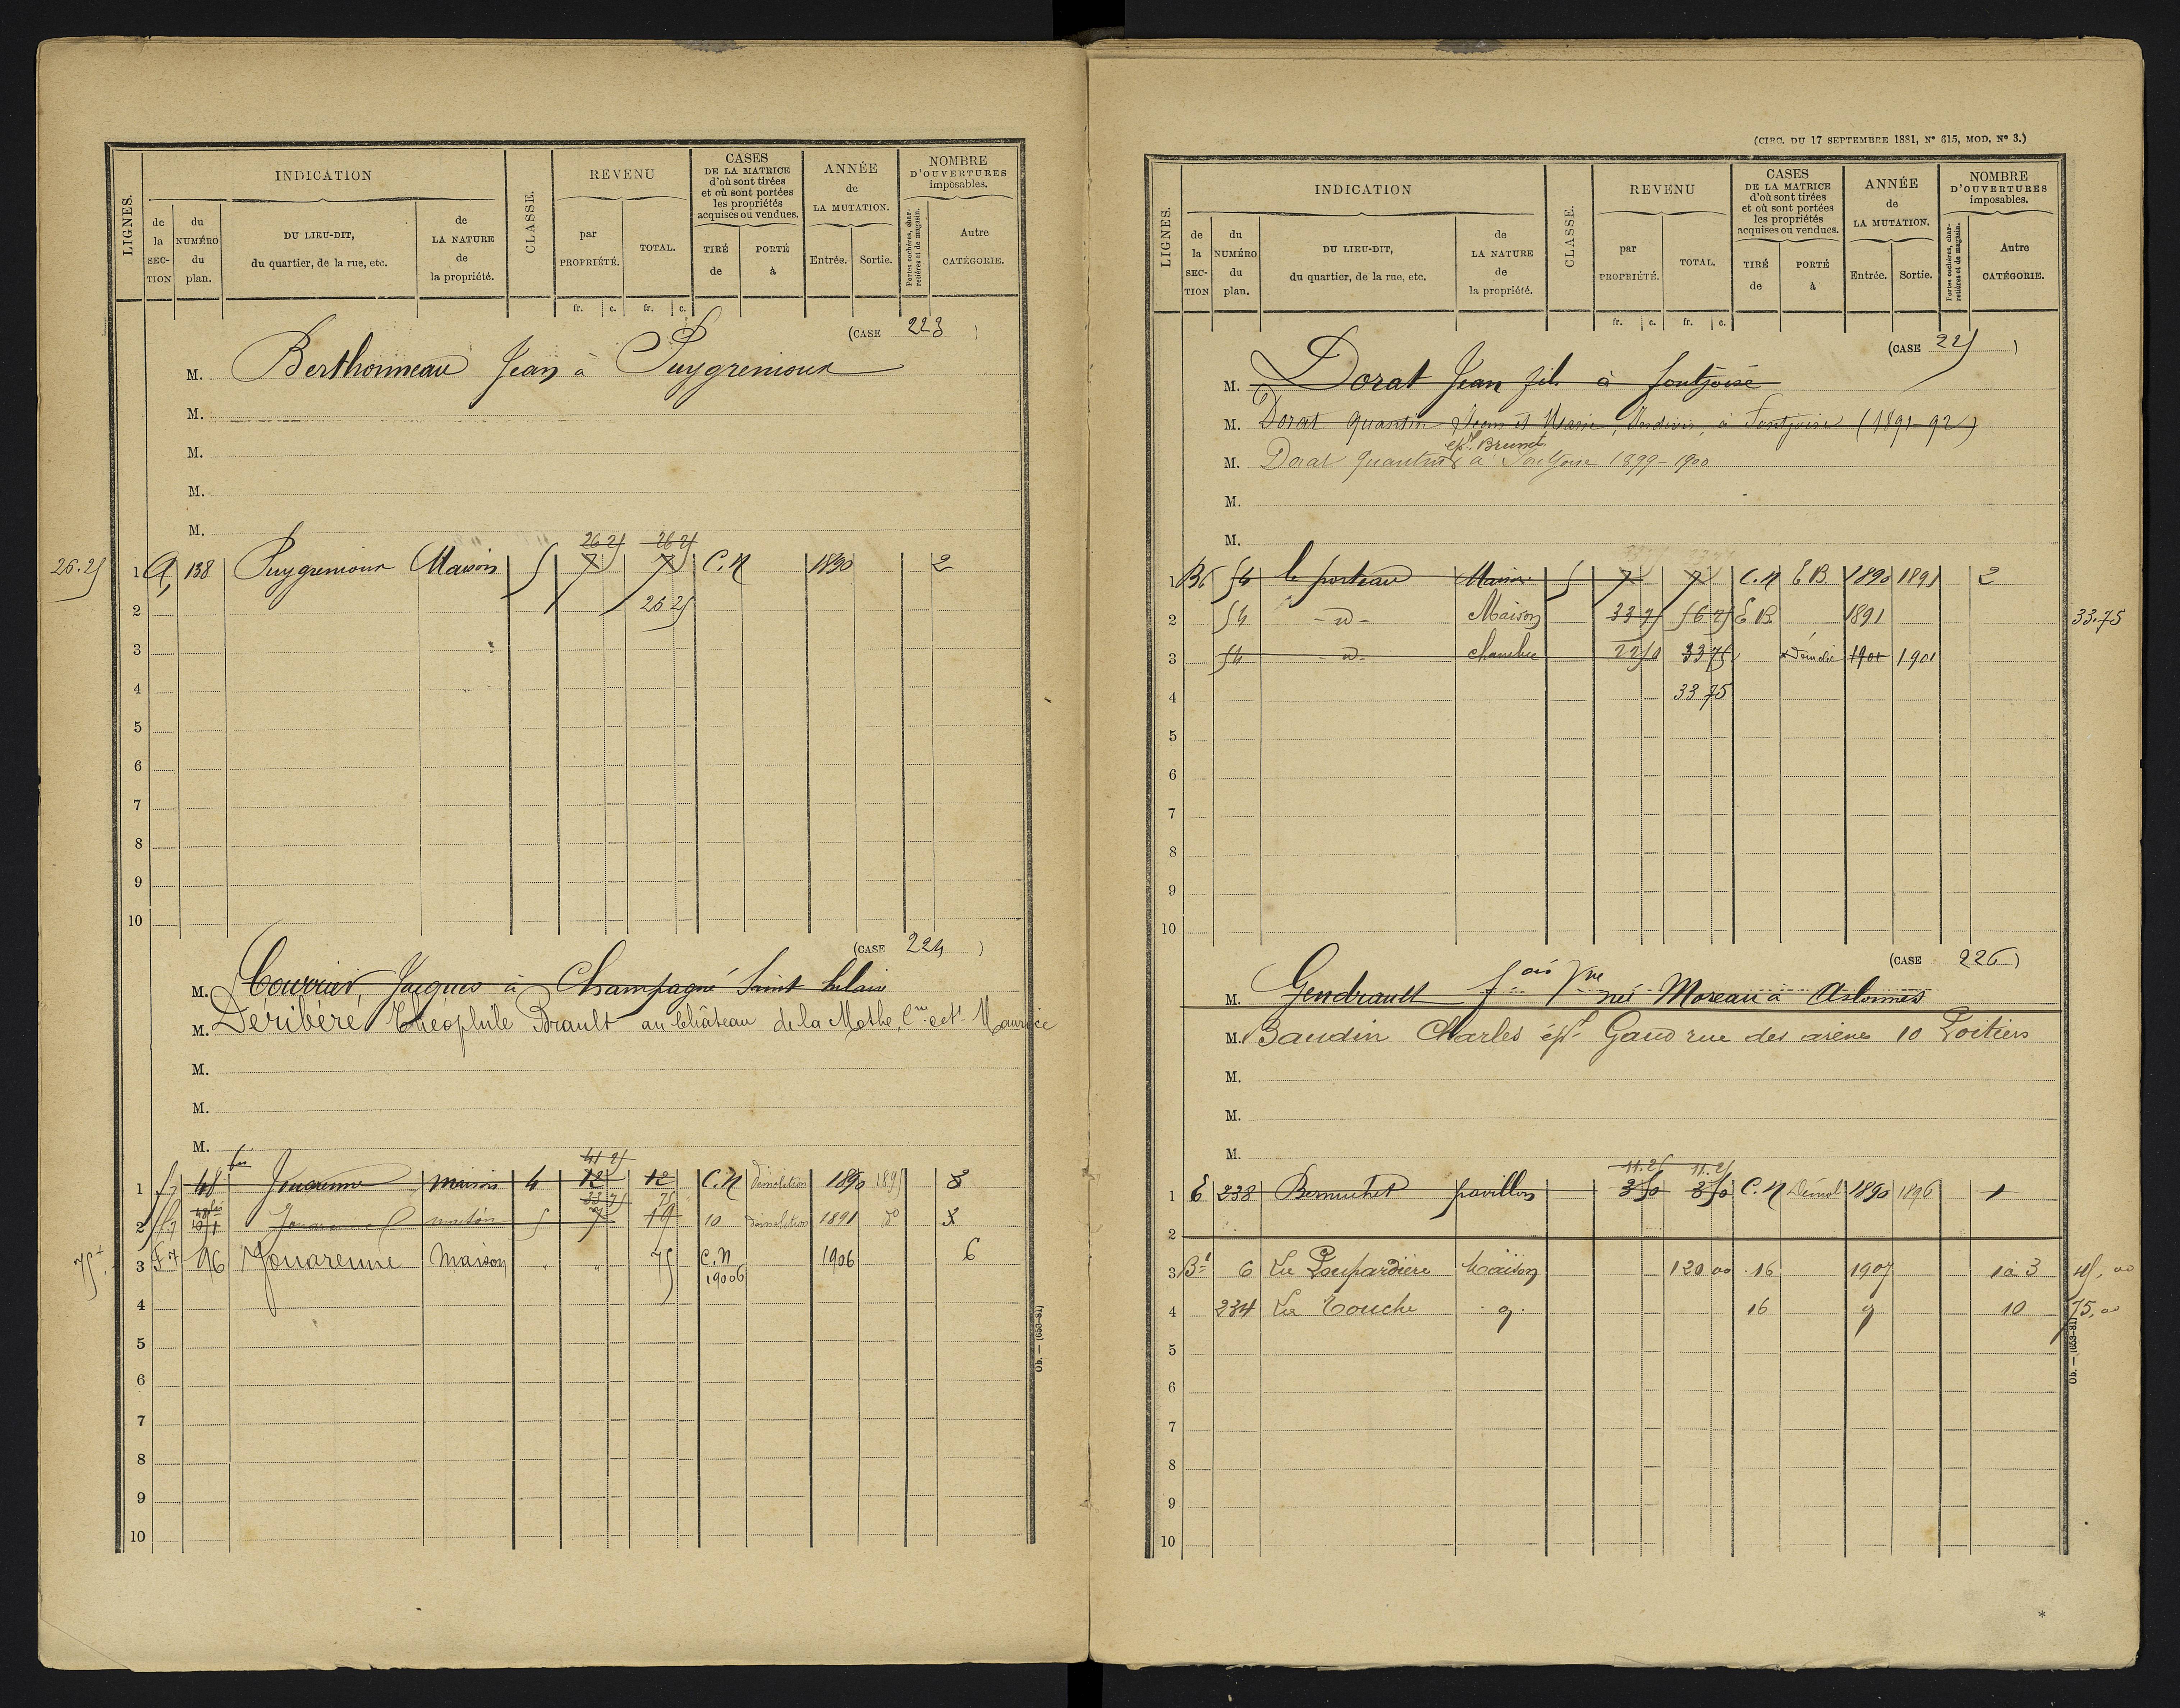 LIGNES.
INDICATION
de la SECTION
du NUMÉRO du plan.
DU LIEU-DIT, du quartier, de la rue, etc.
de LA NATURE de la propriété.
CLASSE.
REVENU
par PROPRIÉTÉ.
TOTAL.
fr. c. fr. c.
CASES DE LA MATRICE d'où sont tirées et où sont portées les propriétés acquises ou vendues.
TIRÉ de
PORTÉ à
ANNÉE de LA MUTATION.
Entrée. Sortie.
NOMBRE D'OUVERTURES imposables.
Portes cochères, charretières et de magasin.
Autre CATÉGORIE.
(CASE 223)
M. Berthonneau Jean à Puygremoux
M.
M.
M.
M.
26 25 26 25
26.25 1 A 138 Puygremoux Maison 5 7 7 C.N 1890 2
2 26 25
3
4
5
6
7
8
9
10
(CASE 224)
M. Courrier, Jacques à Champagné Saint hilaire
M. Deribéré Théophile Brault au Château de la Mothe, Cne de St Maurice
M.
M.
M.
41 25
1 f7 48 bis Jouarenne maison 4 12 12 C.N démolition 1890 1895 3
33 75 75
2 f.7 Jouarenne 5 7 19 10 démolition 1891 do 3
75 3 F7 96 Jouarenne Maison " " 75 C.N 1906 1906 6
4
5
6
7
8
9
10
Ob. — (653-81)
(CIRC. DU 17 SEPTEMBRE 1881, N° 615, MOD. N° 3.)
LIGNES.
INDICATION
de la SECTION
du NUMÉRO du plan.
DU LIEU-DIT, du quartier, de la rue, etc.
de LA NATURE de la propriété.
CLASSE.
REVENU
par PROPRIÉTÉ.
TOTAL.
fr. c. fr. c.
CASES DE LA MATRICE d'où sont tirées et où sont portées les propriétés acquises ou vendues.
TIRÉ de
PORTÉ à
ANNÉE de LA MUTATION.
Entrée. Sortie.
NOMBRE D'OUVERTURES imposables.
Portes cochères, charretières et de magasin.
Autre CATÉGORIE.
(CASE 225)
M. Dorat Jean fils à fontjoise
M. Dorat Quantin Jean et Marie, Indivis, à Fontjoise (1891-92)
M. Dorat Quantin ept Brunet à Fontjoise 1899-1900
M.
M.
1 B6 54 le porteau Maison 5 7 7 C.N E B 1890 1891 2
2 54 -d- Maison 33 75 56 25 E B 1891 33.75
3 54 -d- chambre 22 50 33 75 démolie 1901 1901
4 33 75
5
6
7
8
9
10
(CASE 226)
M. Gendrault fois Vve née Moreau à Aslonnes
M. Baudin Charles épt Gaud rue des arènes 10 Poitiers
M.
M.
M.
11.25 11.25
1 E 238 Bernuchet pavillon 3 50 3 50 C.N Démol 1890 1896 1
2
3 B1 6 La Loupardière Maison 120 00 16 1907 1 à 3 45,00
4 234 La Touche 16 10 75,00
5
6
7
8
9
10
Ob. — (653-81)
*